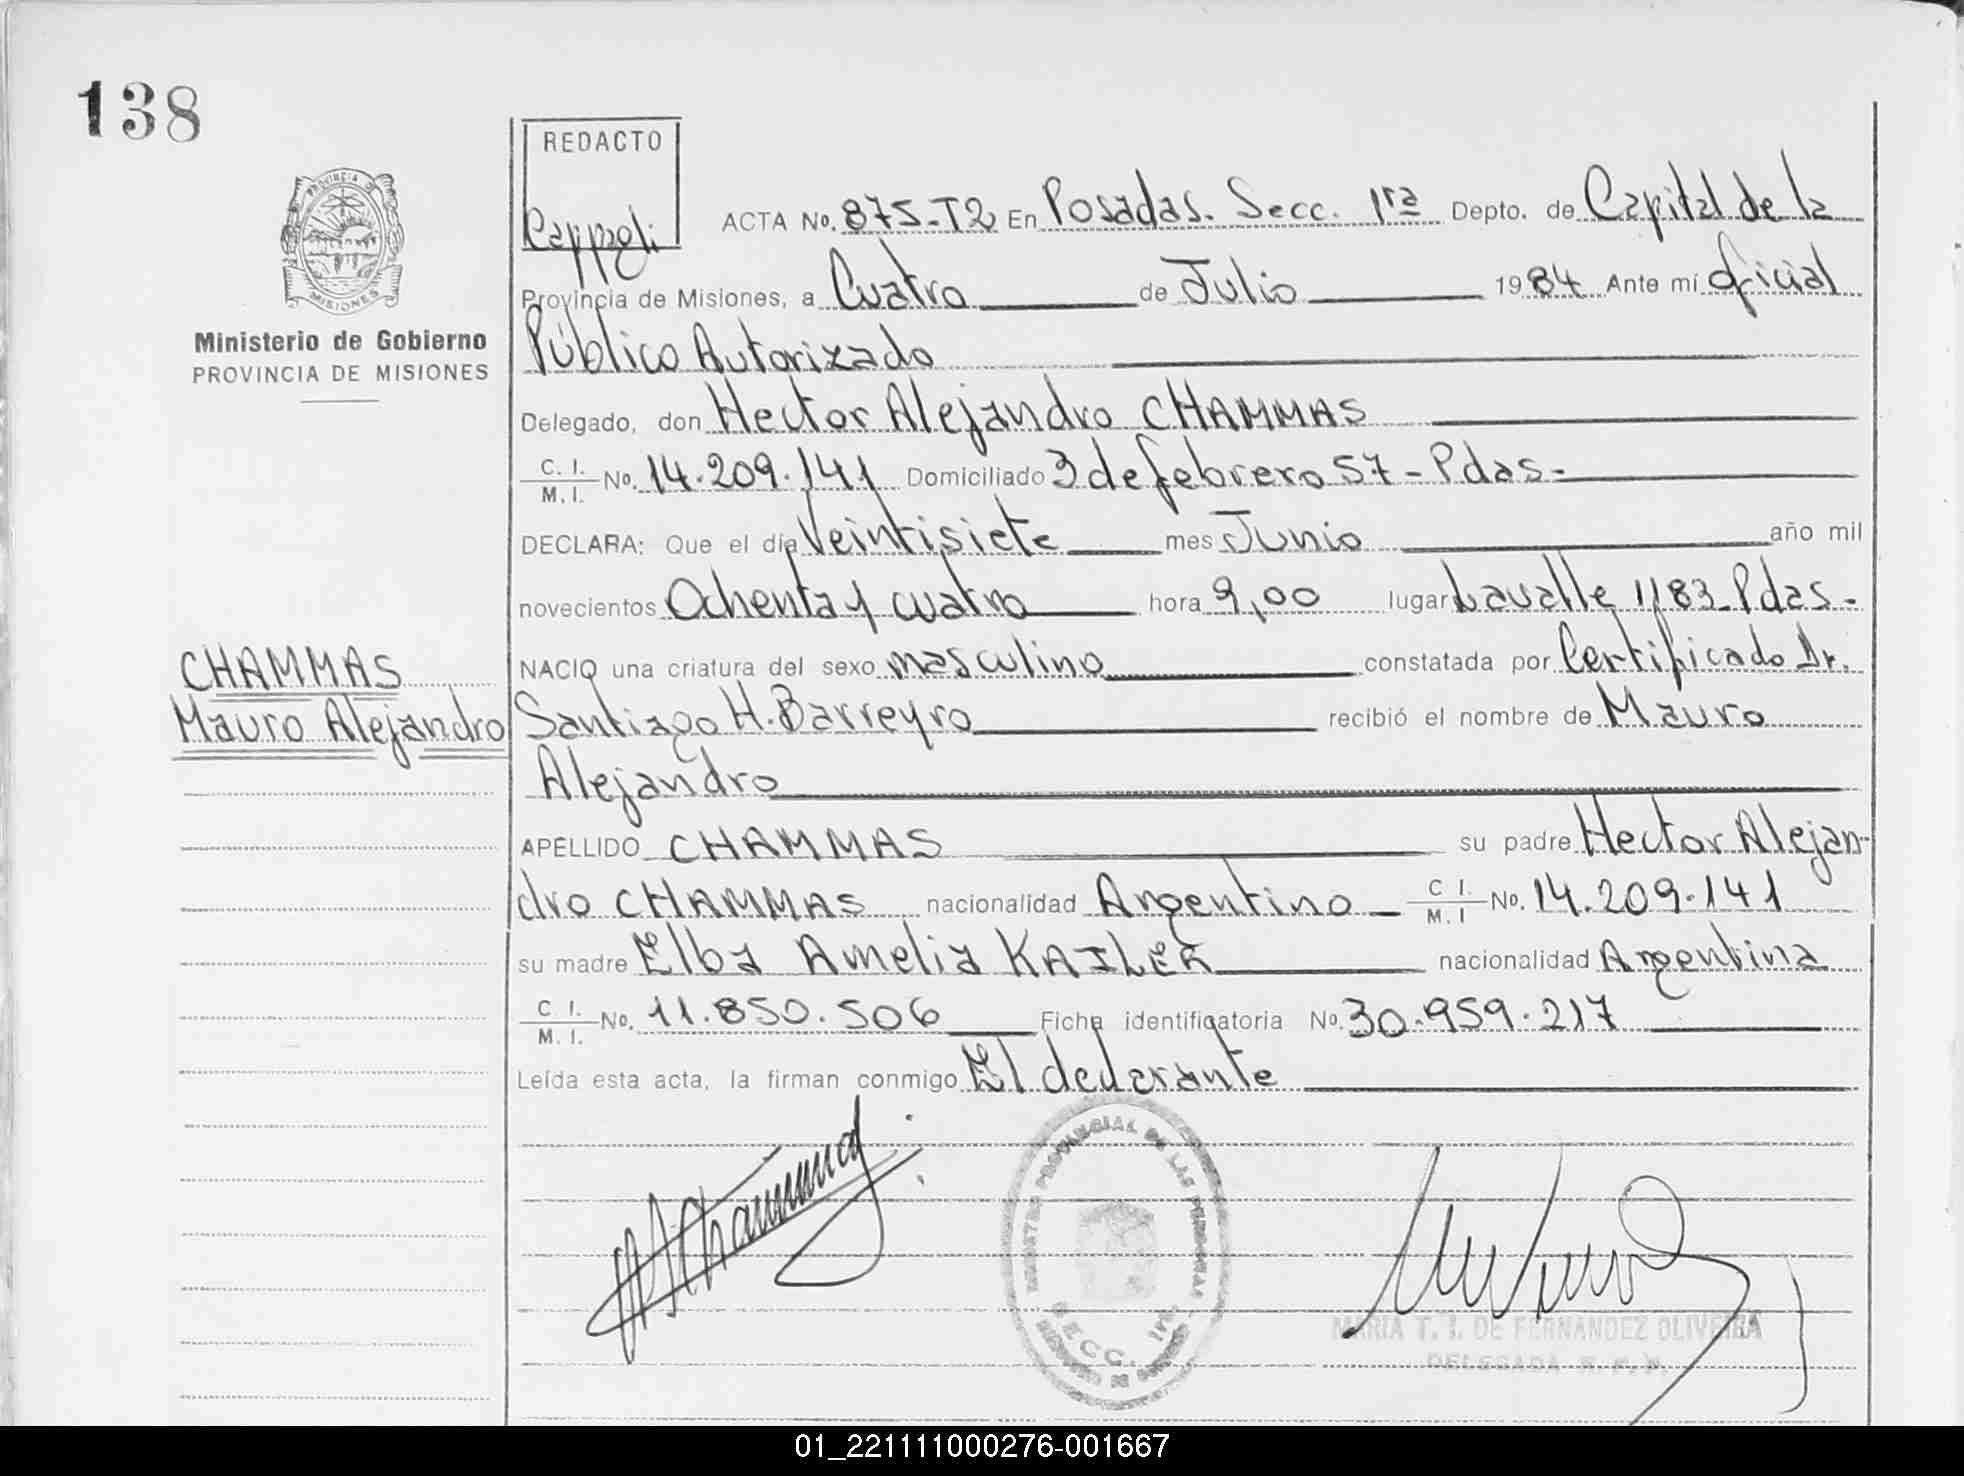 138
REDACTO
Cappeli
ACTA No. 875-T2 En Posadas. Secc. 1ra Depto. de Capital de la
Provincia de Misiones, a Cuatro de Julio 1984 Ante mí Oficial
Público Autorizado
Delegado, don Hector Alejandro CHAMMAS
C. I. / M. I. No. 14.209.141 Domiciliado 3 de febrero 57 - Pdas -
DECLARA: Que el día Veintisiete mes Junio año mil
novecientos Ochenta y cuatro hora 9,00 lugar Lavalle 1183 - Pdas -
NACIO una criatura del sexo masculino constatada por Certificado Dr.
Santiago H. Barreyro recibió el nombre de Mauro
Alejandro
APELLIDO CHAMMAS su padre Hector Alejan-
dro CHAMMAS nacionalidad Argentino C I. / M. I No. 14.209.141
su madre Elba Amelia KAILER nacionalidad Argentina
C I. / M. I. No. 11.850.506 Ficha identificatoria No. 30.959.217
Leída esta acta, la firman conmigo El declarante
PROVINCIA DE
MISIONES
Ministerio de Gobierno
PROVINCIA DE MISIONES
CHAMMAS
Mauro Alejandro
PROVINCIAL DE LAS PERSONAS
SECC. 1RA.
MARIA T. I. DE FERNANDEZ OLIVEIRA
DELEGADA
01_221111000276-001667